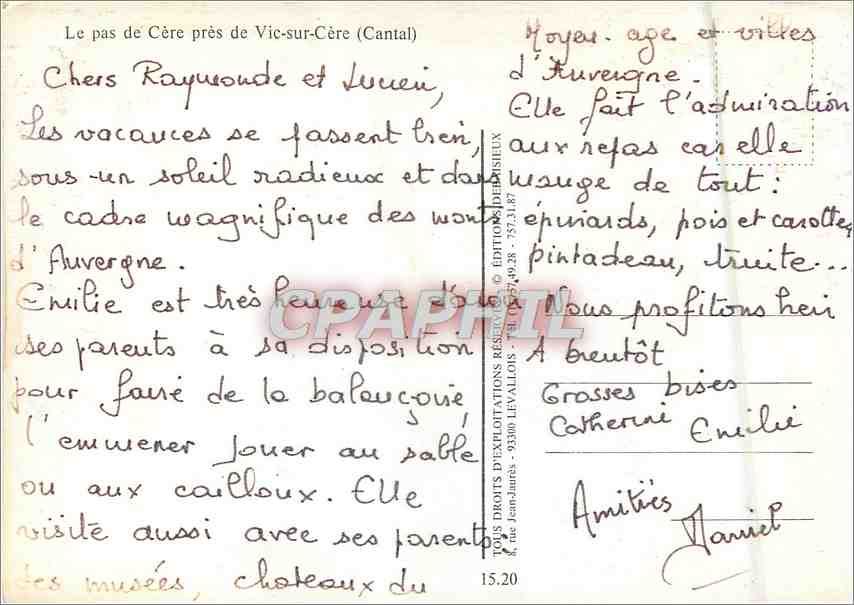 Le pas de Cère près de Vic-sur-Cère (Cantal)
Chers Raymonde et Lucien,
Les vacances se passent bien,
sous un soleil radieux et dans
le cadre magnifique des monts
d'Auvergne.
Emilie est très heureuse d'avoir
ses parents à sa disposition
pour faire de la balançoire,
l'emmener jouer au sable
ou aux cailloux. Elle
visite aussi avec ses parents :
des musées, chateaux du
Moyen-age et villes
d'Auvergne.
Elle fait l'admiration
aux repas car elle
mange de tout :
épinards, pois et carottes,
pintadeau, truite...
Nous profitons bien
A bientôt
Grosses bises
Catherine Emilie
Amitiés
Daniel
TOUS DROITS D'EXPLOITATIONS RÉSERVÉS © ÉDITIONS DEBAISIEUX
8, rue Jean-Jaurès - 93300 LEVALLOIS - Tél. 757.49.28 - 757.31.87
15.20
CPAPHIL